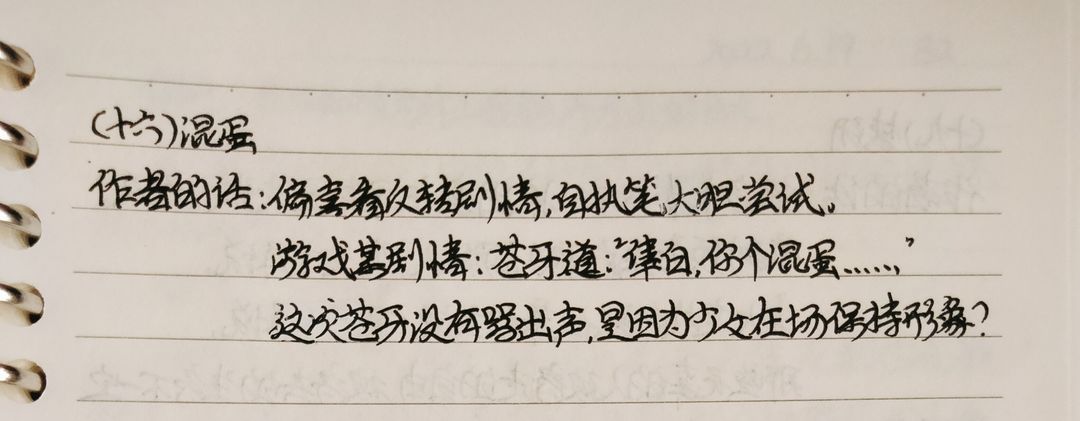 (十六)混蛋
作者的话:偏喜看反转剧情,自执笔大胆尝试。
游戏某剧情:苍牙道:“律白,你个混蛋……”
这次苍牙没有骂出声,是因为少女在场保持形象?